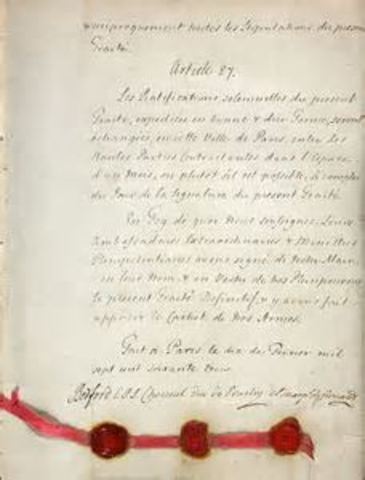 & reciproquement toutes les Stipulations du present
Traité.
Article 27.
Les Ratifications solemnelles du present
Traité, expediées en bonne & due Forme, seront
échangées en cette Ville de Paris, entre les
Hautes Parties Contractantes dans l'Espace
d'un Mois, ou plutôt s'il est possible, à compter
du Jour de la Signature du présent Traité.
En Foy de quoi Nous soussignés, Leurs
Ambassadeurs Extraordinaires & Ministres
Plenipotentiaires avons signé de Notre Main,
en leur Nom, & en Vertu de nos Pleinpouvoirs,
le présent Traité Definitif, & y avons fait
apposer le Cachet de nos Armes.
Fait à Paris le dix de Fevrier mil
sept cent soixante trois
Bedford C.P.S. Choiseul duc de Praslin el Marq. de Grimaldi